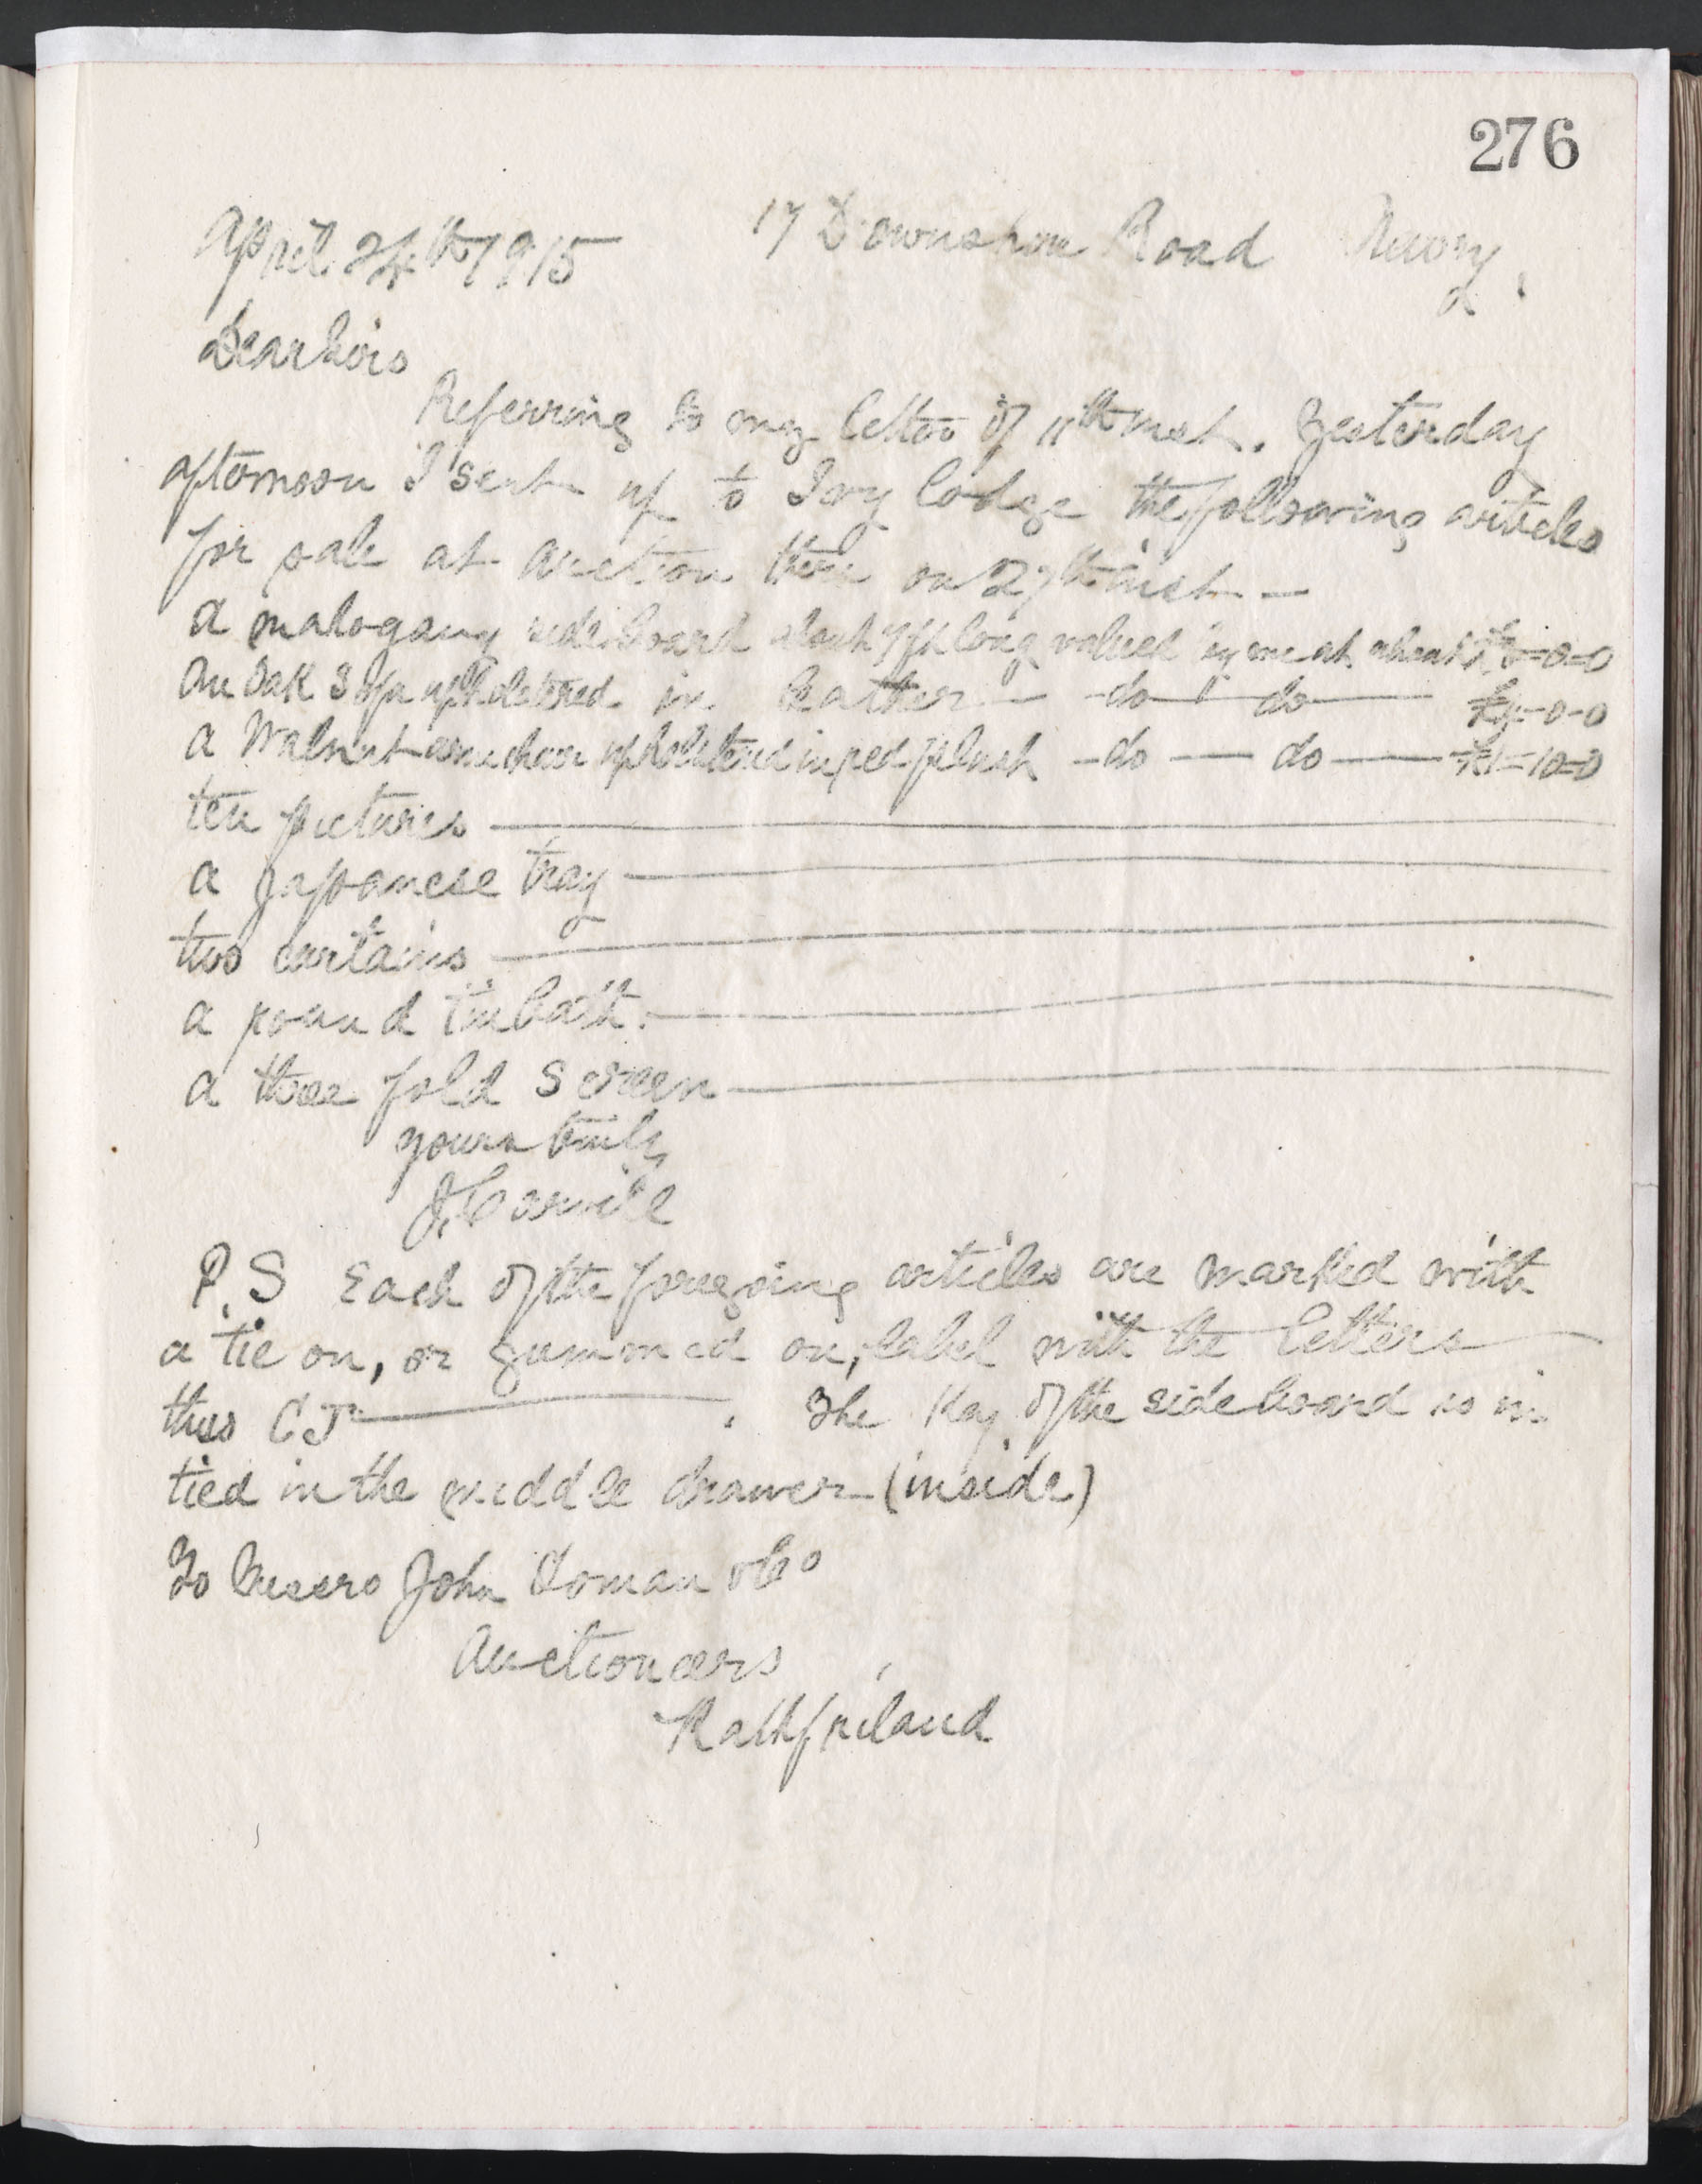 276
April 24th 1915 17 Downshire Road Newry.
Dear Sirs
Referring to my letter of 11th inst. Yesterday
afternoon I sent up to Ivy lodge the following articles
for sale at auction there on 27th inst —
a mahogany sideboard about 7 ft long valued by me at about £ -0-0
An Oak Sofa upholstered in leather — do — do — £4-0-0
a Walnut armchair upholstered in red plush — do — do — £1-10-0
ten pictures —
a Japanese tray —
two curtains —
a round tin bath. —
a three fold screen —
yours truly
J, Carvill
P.S Each of the foregoing articles are marked with
a tie on, or gummed on, label with the letters
thus CJ — . The Key of the sideboard is in
tied in the middle drawer (inside)
To Messrs John Loman & Co
Auctioneers
Rathfriland